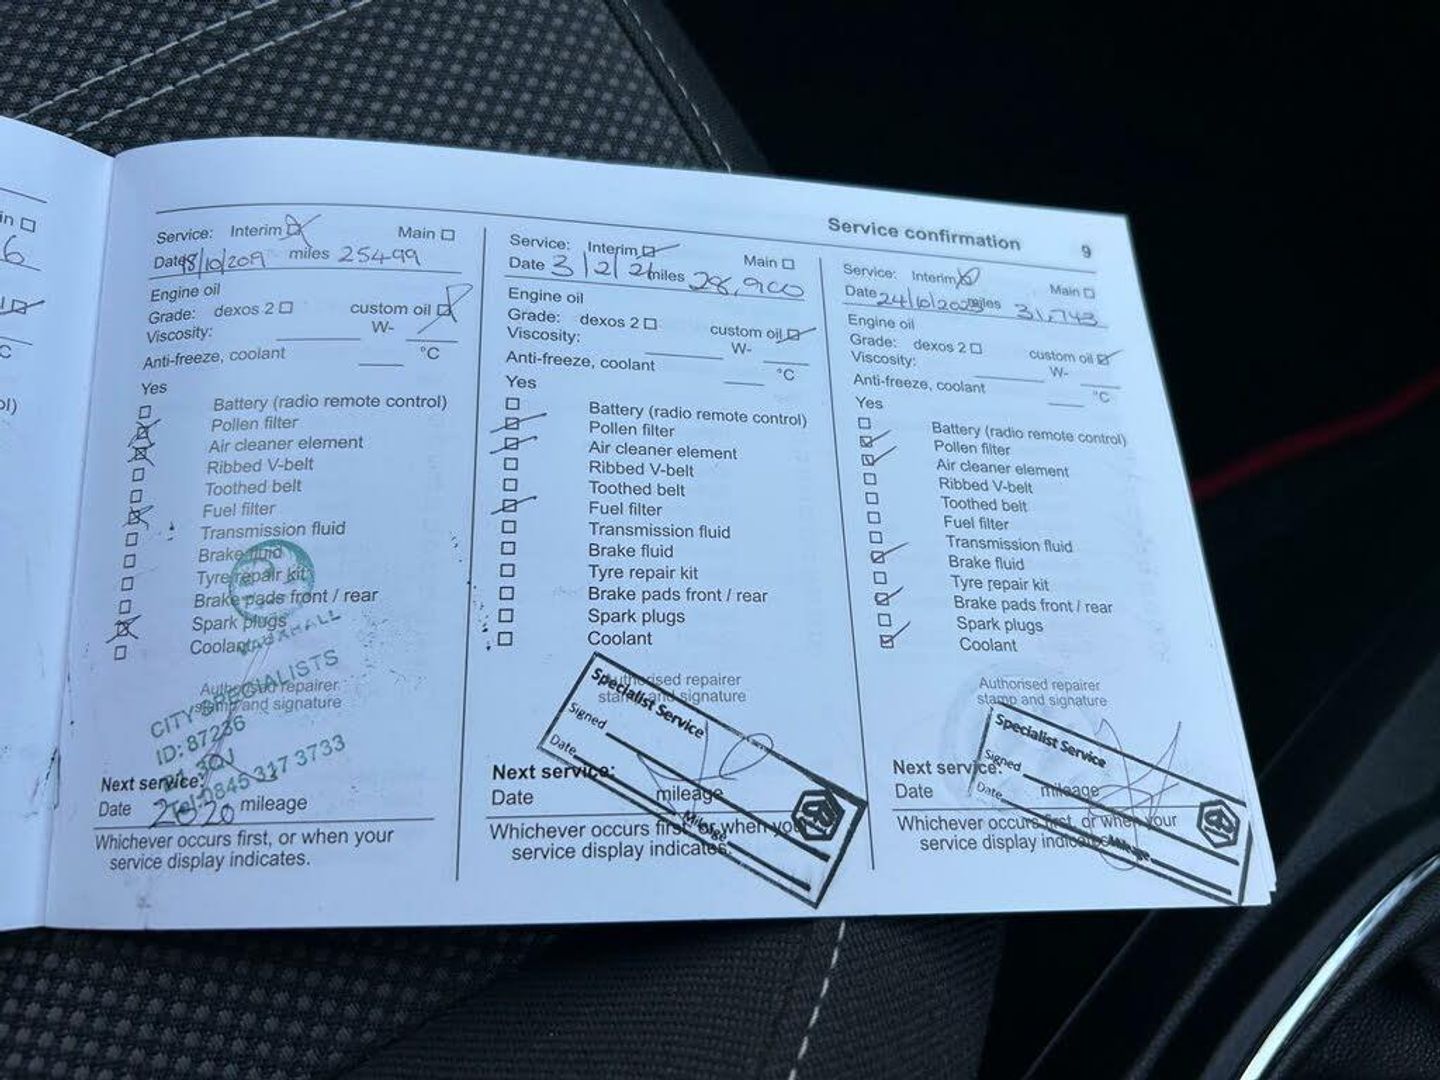 in
6
C
ol)
Service confirmation 9
Service: Interim Main
Date 18/10/2019 miles 25499
Engine oil
Grade: dexos 2 custom oil
Viscosity: W-
Anti-freeze, coolant °C
Yes
Battery (radio remote control)
Pollen filter
Air cleaner element
Ribbed V-belt
Toothed belt
Fuel filter
Transmission fluid
Brake fluid
Tyre repair kit
Brake pads front / rear
Spark plugs
Coolant
VAUXHALL
Authorised repairer
stamp and signature
CITY SPECIALISTS
ID: 87236
3QJ
Tel: 0845 317 3733
Next service:
Date 2020 mileage
Whichever occurs first, or when your
service display indicates.
Service: Interim Main
Date 3/2/21 miles 28,900
Engine oil
Grade: dexos 2 custom oil
Viscosity: W-
Anti-freeze, coolant °C
Yes
Battery (radio remote control)
Pollen filter
Air cleaner element
Ribbed V-belt
Toothed belt
Fuel filter
Transmission fluid
Brake fluid
Tyre repair kit
Brake pads front / rear
Spark plugs
Coolant
Authorised repairer
stamp and signature
Specialist Service
Signed
Date
Mileage
Next service:
Date mileage
Whichever occurs first, or when you
service display indicates.
Service: Interim Main
Date 24/10/2023 miles 31,743
Engine oil
Grade: dexos 2 custom oil
Viscosity: W-
Anti-freeze, coolant °C
Yes
Battery (radio remote control)
Pollen filter
Air cleaner element
Ribbed V-belt
Toothed belt
Fuel filter
Transmission fluid
Brake fluid
Tyre repair kit
Brake pads front / rear
Spark plugs
Coolant
Authorised repairer
stamp and signature
Specialist Service
Signed
Date
Mileage
Next service:
Date mileage
Whichever occurs first, or when your
service display indicates.